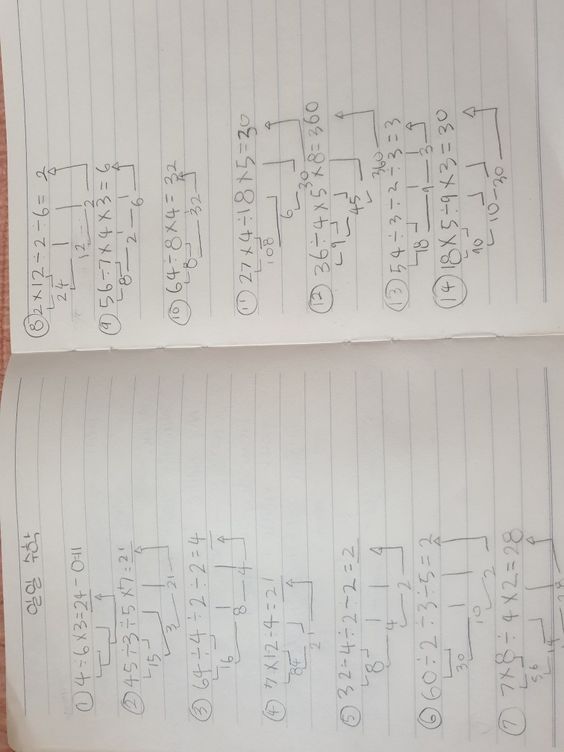 일일 수학
① 4÷6×3=24
② 45÷3÷5×7=21
15
3
21
③ 64÷4÷2÷2=4
16
8
4
④ 7×12÷4=21
84
21
⑤ 32÷4÷2÷2=2
8
4
2
⑥ 60÷2÷3÷5=2
30
10
2
⑦ 7×8÷4×2=28
56
14
28
⑧ 2×12÷2÷6=2
24
12
2
⑨ 56÷7×4×3=6
8
2
6
⑩ 64÷8×4=32
8
32
⑪ 27×4÷18×5=30
108
6
30
⑫ 36÷4×5×8=360
9
45
360
⑬ 54÷3÷2÷3=3
18
9
3
⑭ 18×5÷9×3=30
10
30